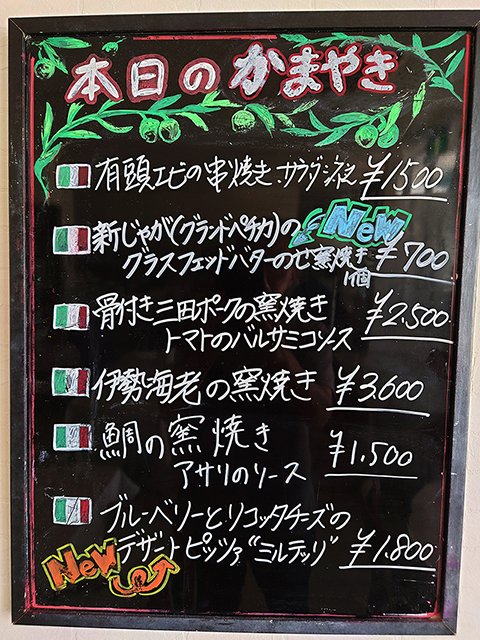 本日のかまやき
有頭エビの串焼き サラダ添え ¥1500
新じゃが(グランドペチカ)の NeW
クラスフェンドバターのせ窯焼き ¥700
1個
骨付き三田ポークの窯焼き ¥2.500
トマトのバルサミコソース
伊勢海老の窯焼き ¥3.600
鯛の窯焼き ¥1.500
アサリのソース
ブルーベリーとリコッタチーズの
NeW デザートピッツァ"ミルテッリ" ¥1.800